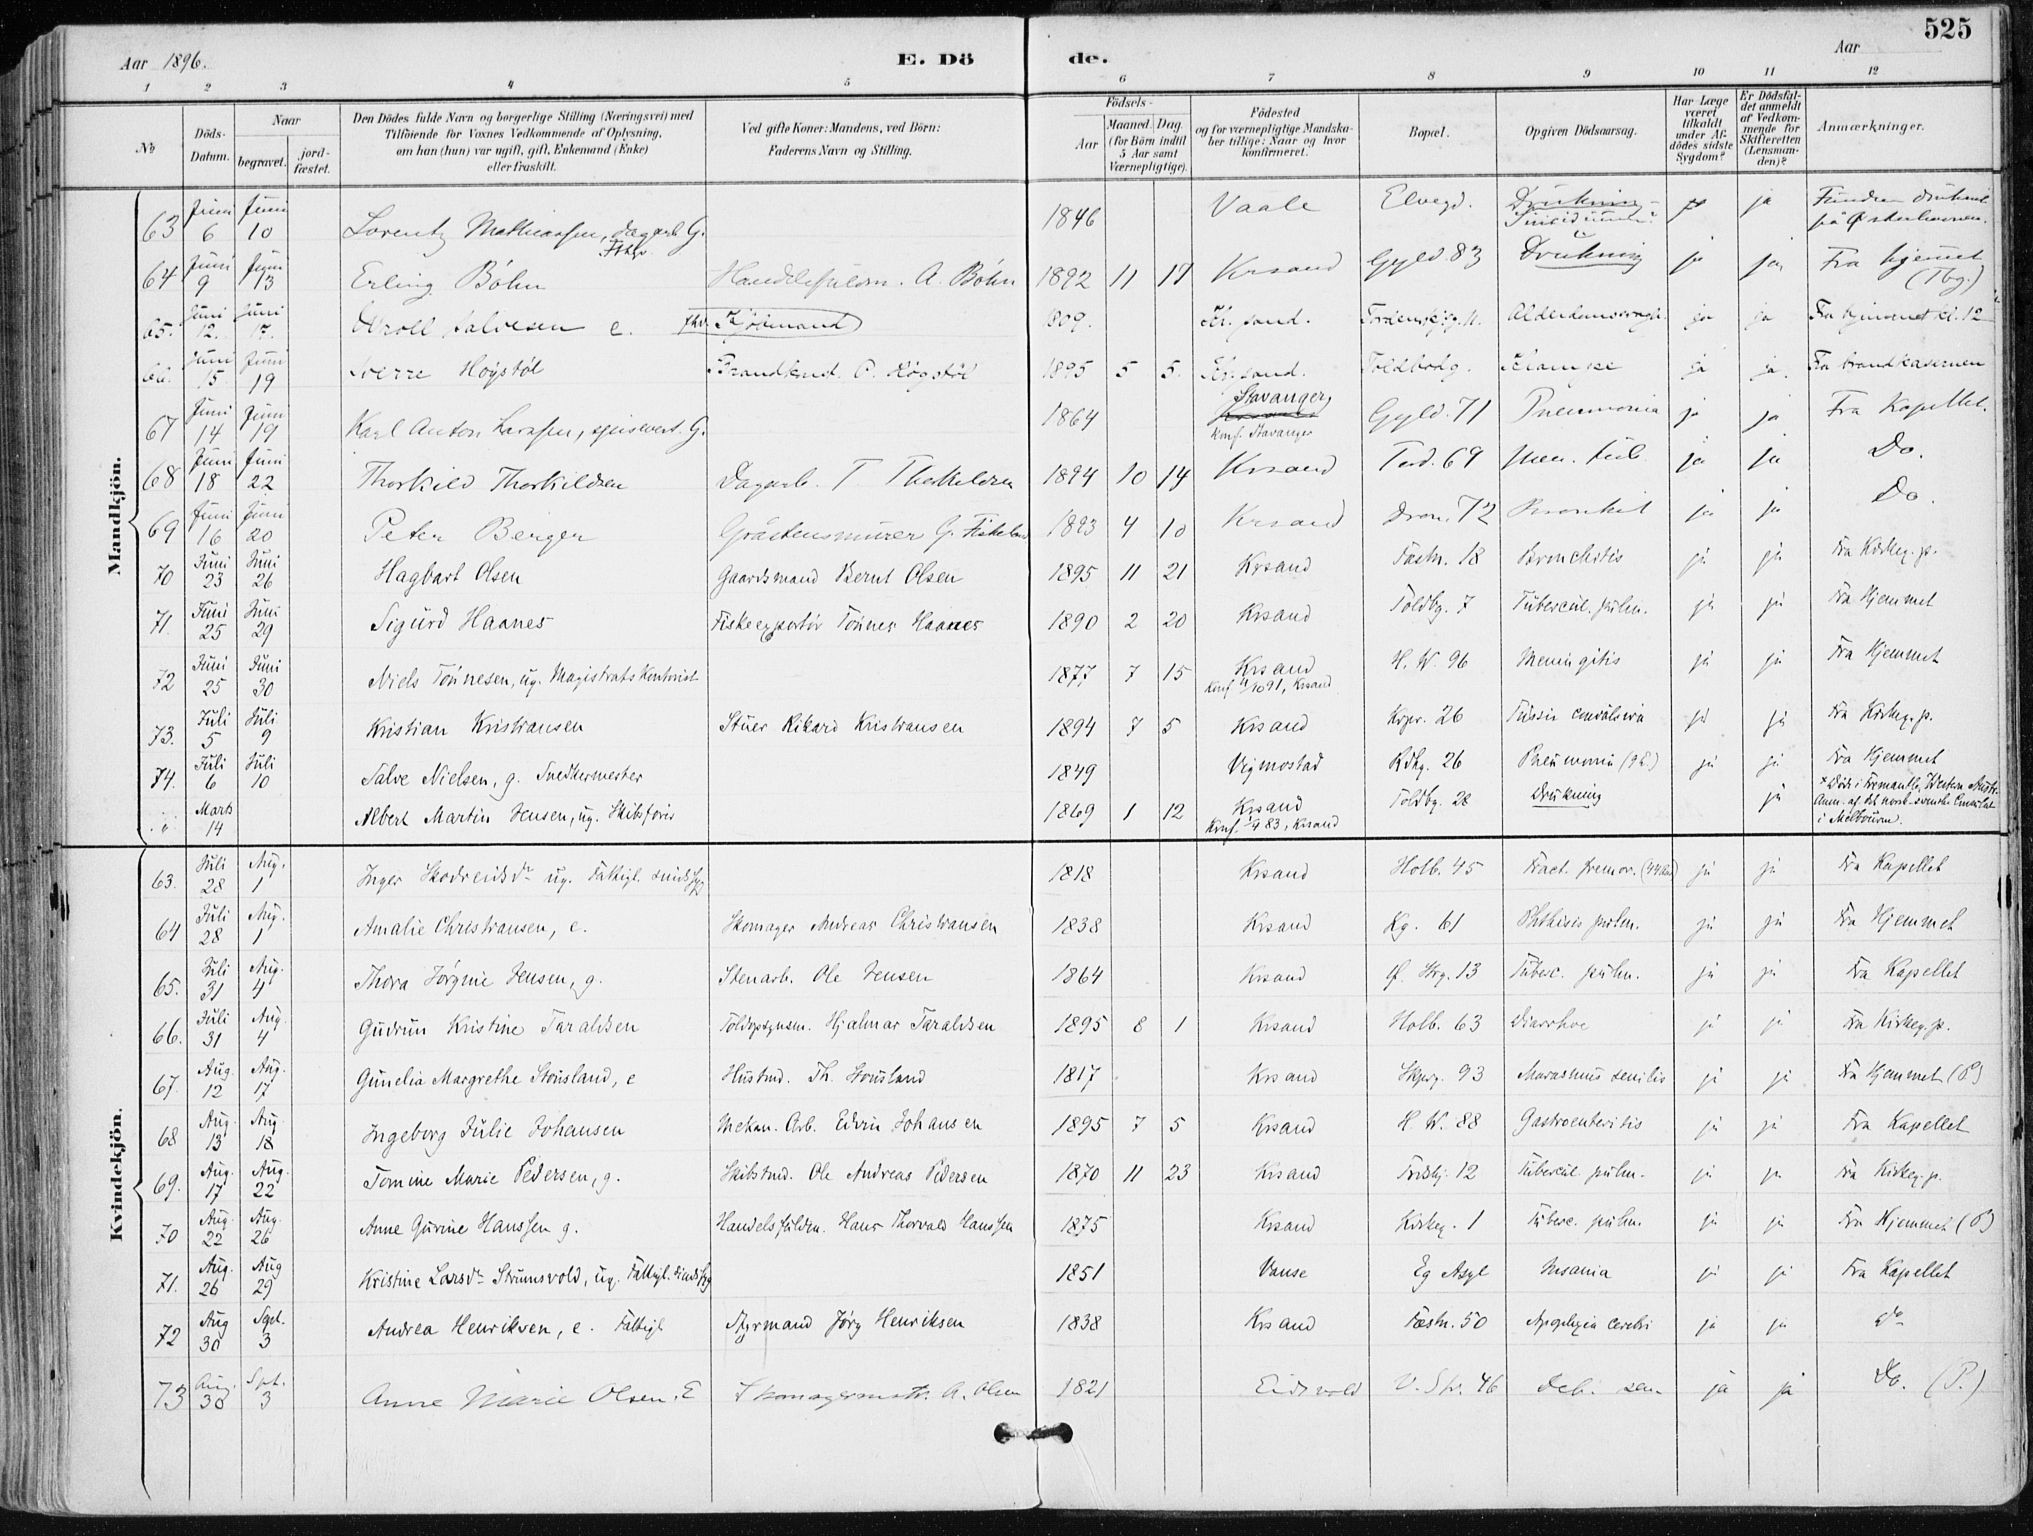 525
Aar 1896. E. Dö de. Aar
1 2 3 4 5 6 7 8 9 10 11 12
No
Döds-Datum.
Naar
begravet.
jord-fæstet.
Den Dödes fulde Navn og borgerlige Stilling (Næringsvei) med
Tilföiende for Voxnes Vedkommende af Oplysning,
om han (hun) var ugift, gift, Enkemand (Enke)
eller fraskilt.
Ved gifte Koner: Mandens, ved Börn:
Faderens Navn og Stilling.
Födsels-
Aar
Maaned. Dag.
(for Börn indtil
5 Aar samt
Værnepligtige).
Födested
og for værnepligtige Mandska-
ber tillige: Naar og hvor
konfirmeret.
Bopæl.
Opgiven Dödsaarsag.
Har Læge
været
tilkaldt
under Af-
dödes sidste
Sygdom?
Er Dödsfal-
det anmeldt
af Vedkom-
mende for
Skifteretten
(Lensman-
den)?
Anmærkninger.
Mandkjön.
63 Juni 6 Juni 10 Lorentz Mathiassen, dagarb. G. 1846 Vaale Elvegd. Drukning ja
64 Juni 9 Juni 13 Erling Böhn Handelsfuldm. A. Böhn 1892 11 17 Krsand Gyld. 83 Drukning ja ja Fra hjemmet
65. Juni 12. Juni 17. Salvesen e. 1809. Kr.sand. ja ja Fra hjemmet kl. 12
66. Juni 15 Juni 19 Sverre Høgstøl Brandkonst. P. Høgstøl 1895 5 5. Kr.sand. Toldbodg. Krampe ja ja. Fra brandkasernen
67 Juni 14 Juni 19 Karl Anton Larssen, spisevert. G. 1864 Stavanger Konf. Stavanger Gyld. 71 Pneumonia ja ja Fra Kapellet.
68 Juni 18 Juni 22 Thorkild Thorkildsen Dagarb. T. Thorkildsen 1894 10 14 Krsand Tord. 69 Men. tub. ja ja Do.
69 Juni 16 Juni 20 Peter Berger Gråstensmurer G. 1893 4 10 Krsand Dron. 72 Bronkit ja ja Do.
70 Juni 23 Juni 26 Hagbart Olsen Gaardsmand Bernt Olsen 1895 11 21 Krsand Fæstn. 18 Bronchitis ja ja Fra Kirkeg. p.
71. Juni 25 Juni 29 Sigurd Haanes Fiskeexportör Tönnes Haanes 1890 2 20 Krsand Toldbg. 7 Tubercul. pulm. ja ja Fra Hjemmet
72 Juni 25 Juni 30 Niels Tönnesen, ug. Magistratskontorist 1877 7 15 Krsand Konf. 4/10 91, Krsand H. W. 96 Meningitis ja ja Fra Hjemmet
73. Juli 5 Juli 9 Kristian Kristiansen Stuer Rikard Kristiansen 1894 7 5 Krsand Krpr. 26 Tussis convulsiva ja ja Fra Kirkeg. p.
74. Juli 6 Juli 10 Salve Nielsen, g. Snedkermester 1849 Vigmostad Rdhg. 26 Pneumonia ja ja Fra Hjemmet
Marts 14 Albert Martin Jensen, ug. Skibsförer 1869 1 12 Krsand Konf. 1/9 83, Krsand Toldbg. 28 Drukning ja × Död i Fremantle, Western Austr.
Anm. af det norsk-svenske Consulat
i Melbourne.
Kvindekjön.
63. Juli 28 Aug. 1 Inger ug. Fattigl. sindssyg 1818 Krsand Holb. 45 Fract. femor. ja ja Fra Kapellet
64 Juli 28 Aug. 1 Amalie Christiansen, e. Skomager Andreas Christiansen 1838 Krsand Kg. 61 Phthisis pulm. ja ja Fra Hjemmet
65. Juli 31 Aug. 4 Thora Jörgine Jensen, g. Stenarb. Ole Jensen 1864 Krsand Ø. Strg. 13 Tuberc. pulm. ja ja Fra Kapellet
66. Juli 31 Aug. 4 Gudrun Kristine Taraldsen Toldopsynsm. Hjalmar Taraldsen 1895 8 1 Krsand Holb. 63 Diarrhoe ja ja Fra Kirkeg. p.
67. Aug. 12 Aug. 17 Gunelia Margrethe Stousland, e Hustmd. Th. Stousland 1817 Krsand Skprg. 93 Marasmus senilis ja ja Fra Hjemmet (P)
68 Aug. 13 Aug. 18 Ingeborg Julie Johansen Mekan. Arb. Edvin Johansen 1895 7 5 Krsand H. W. 88 Gastroenteritis ja ja Fra Kapellet
69. Aug. 17 Aug. 22 Tomine Marie Pedersen, g. Skibstmd. Ole Andreas Pedersen 1870 11 23 Krsand 12 Tubercul. pulm. ja ja Fra Kirkeg. p.
70 Aug. 22 Aug. 26 Anne Gurine Hanssen g. Handelsfuldm. Hans Thorvald Hanssen 1875 Krsand Kirkeg. 1 Tuberc. pulm. ja ja Fra Hjemmet (P)
71. Aug. 26 Aug 29 Kristine Larsdr Strumsvold, ug. Fattigl. sindssyg 1851 Vanse Eg Asyl Insania ja ja Fra Kapellet
72 Aug 30 Sept. 3 Andrea Henriksen, e. Fattigl Styrmand Jörg Henriksen 1838 Krsand Fæstn. 50 Apoplexia cerebri ja ja do
73 Aug. 30 Spt. 3 Anne Marie Olsen. E Skomagermstr. A. Olsen 1821 Eidsvold V. Str. 46 Deb. sen ja ja Do. (P.)